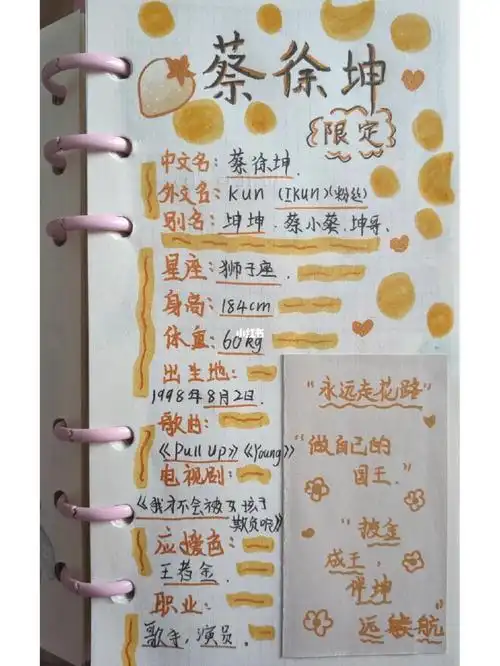 蔡徐坤
限定
中文名：蔡徐坤.
外文名：kun (IKUN)(粉丝)
别名：坤坤.蔡小葵.坤哥.
星座：狮子座.
身高：184cm
体重：60kg
出生地：
1998年8月2日.
歌曲：
《Pull Up》《Young》
电视剧：
《我才不会被女孩子
欺负呢》
应援色：
王者金.
职业：
歌手，演员.
小红书
"永远走花路"
"做自己的
国王."
"披金
成王，
伴坤
远航"